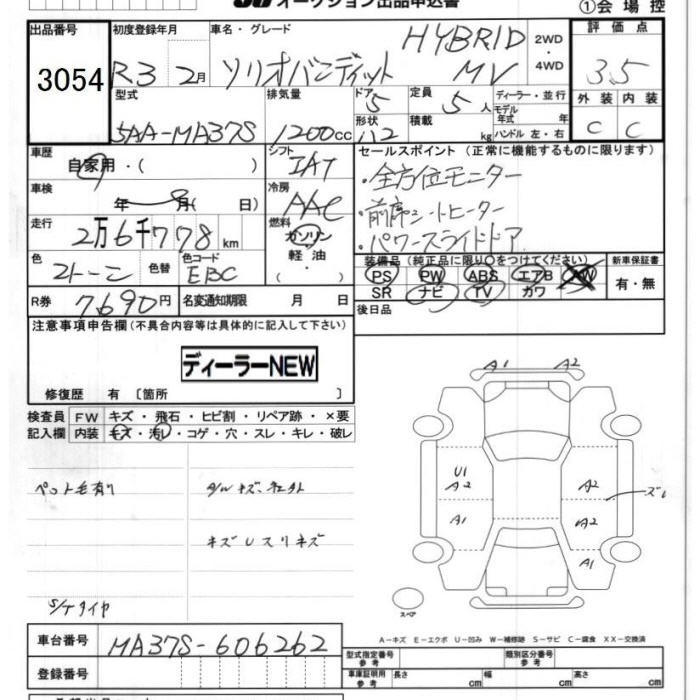 オークション出品申込書
①会場控
出品番号 初度登録年月 車名・グレード 評価点
3054 R3 2月 ソリオバンディット HYBRID MV 2WD・4WD 3.5
型式 排気量 ドア 定員 ディーラー・並行 外装 内装
5AA-MA37S 1200cc 5 5人 モデル年式 年 C C
形状 積載 kg ハンドル 左・右
車歴 シフト セールスポイント (正常に機能するものに限ります)
自家用・( ) IAT ・全方位モニター
車検 年 月( 日) 冷房 AAC ・前席シートヒーター
走行 2万6千778km 燃料 ガソリン・軽油・( ) ・パワースライドドア
色 色替 色コード EBC
装備品(純正品に限り○をつけてください) 新車保証書
PS PW ABS エアB AW 有・無
SR ナビ TV カワ
R券 7,690円 名変通知期限 月 日 後日品
注意事項申告欄(不具合内容等は具体的に記入して下さい)
ディーラーNEW
修復歴 有 〔箇所 〕
検査員 FW キズ・飛石・ヒビ割・リペア跡・×要
記入欄 内装 キズ・汚レ・コゲ・穴・スレ・キレ・破レ
A1 A2
ペット毛有り
U1
A2 A2
A1 A2
キズ U スリキズ
A1
S/Tタイヤ
スペア
A-キズ E-エクボ U-凹み W-補修跡 S-サビ C-腐食 XX-交換済
車台番号 MA37S-606262
型式指定番号 参考 類別区分番号 参考
登録番号 車庫証明用 参考 長さ cm 幅 cm 高さ cm